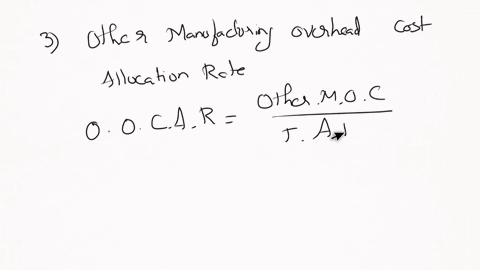 3) Other Manufacturing overhead Cost
Allocation Rate
O. O. C. A. R = Other. M. O. C
T. A